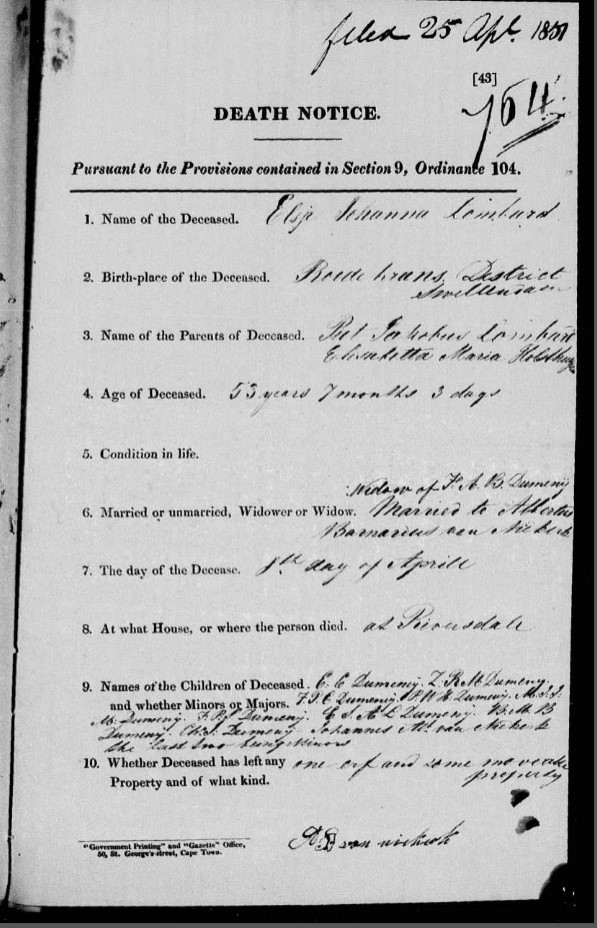 filed 25 Apl. 1851
[43]
764
DEATH NOTICE.
Pursuant to the Provisions contained in Section 9, Ordinance 104.
1. Name of the Deceased. Elsje Johanna Lombard
2. Birth-place of the Deceased. Roode krans, District
Swellendam
3. Name of the Parents of Deceased. Piet Jackobus Lombard
Elisabetta Maria
4. Age of Deceased. 53 years 7 months 3 days
5. Condition in life.
Widow of F. A. B. Dumeny
6. Married or unmarried, Widower or Widow. Married to Albertus
Barnardus van Niekerk
7. The day of the Decease. 8th day of Aprill
8. At what House, or where the person died. at Riversdale
9. Names of the Children of Deceased. E. E Dumeny. Z. R. M. Dumeny.
and whether Minors or Majors. F. P. C Dumeny. P. W. H. Dumeny. M. S. J.
M. Dumeny. F. P. S Dumeny. E. J. A. L Dumeny. B. M. B
Dumeny. Dumeny Johannes M. van Niekerk
the last two being Minors
10. Whether Deceased has left any one erf and some moveable
Property and of what kind. property
A. B van niekerk
"Government Printing" and "Gazette" Office,
50, St. George's street, Cape Town.